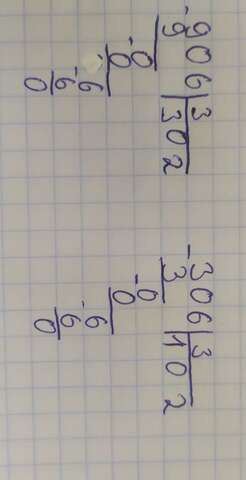 -906|3
9|302
-0
0
-6
6
0
-306|3
3|102
-0
0
-6
6
0